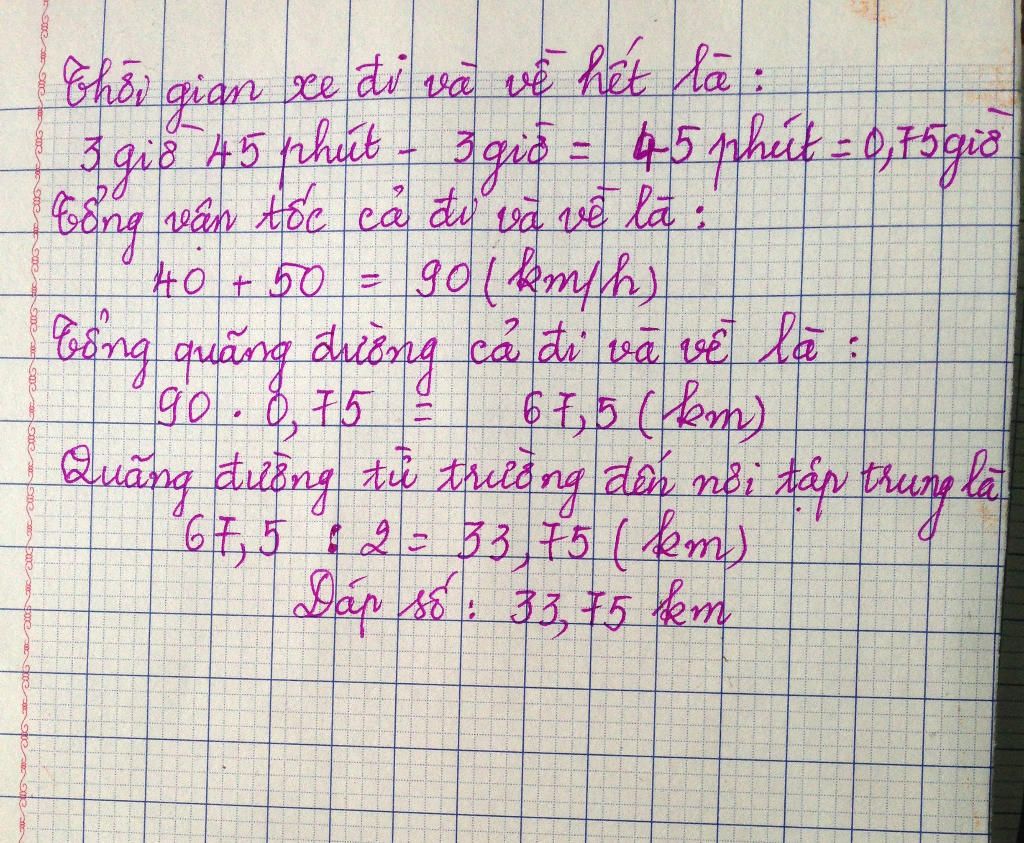 Thời gian xe đi và về hết là :
3 giờ 45 phút - 3 giờ = 45 phút = 0,75 giờ
Tổng vận tốc cả đi và về là :
40 + 50 = 90 (km/h)
Tổng quãng đường cả đi và về là :
90 . 0,75 = 67,5 (km)
Quãng đường từ trường đến nơi tập trung là
67,5 : 2 = 33,75 (km)
Đáp số : 33,75 km